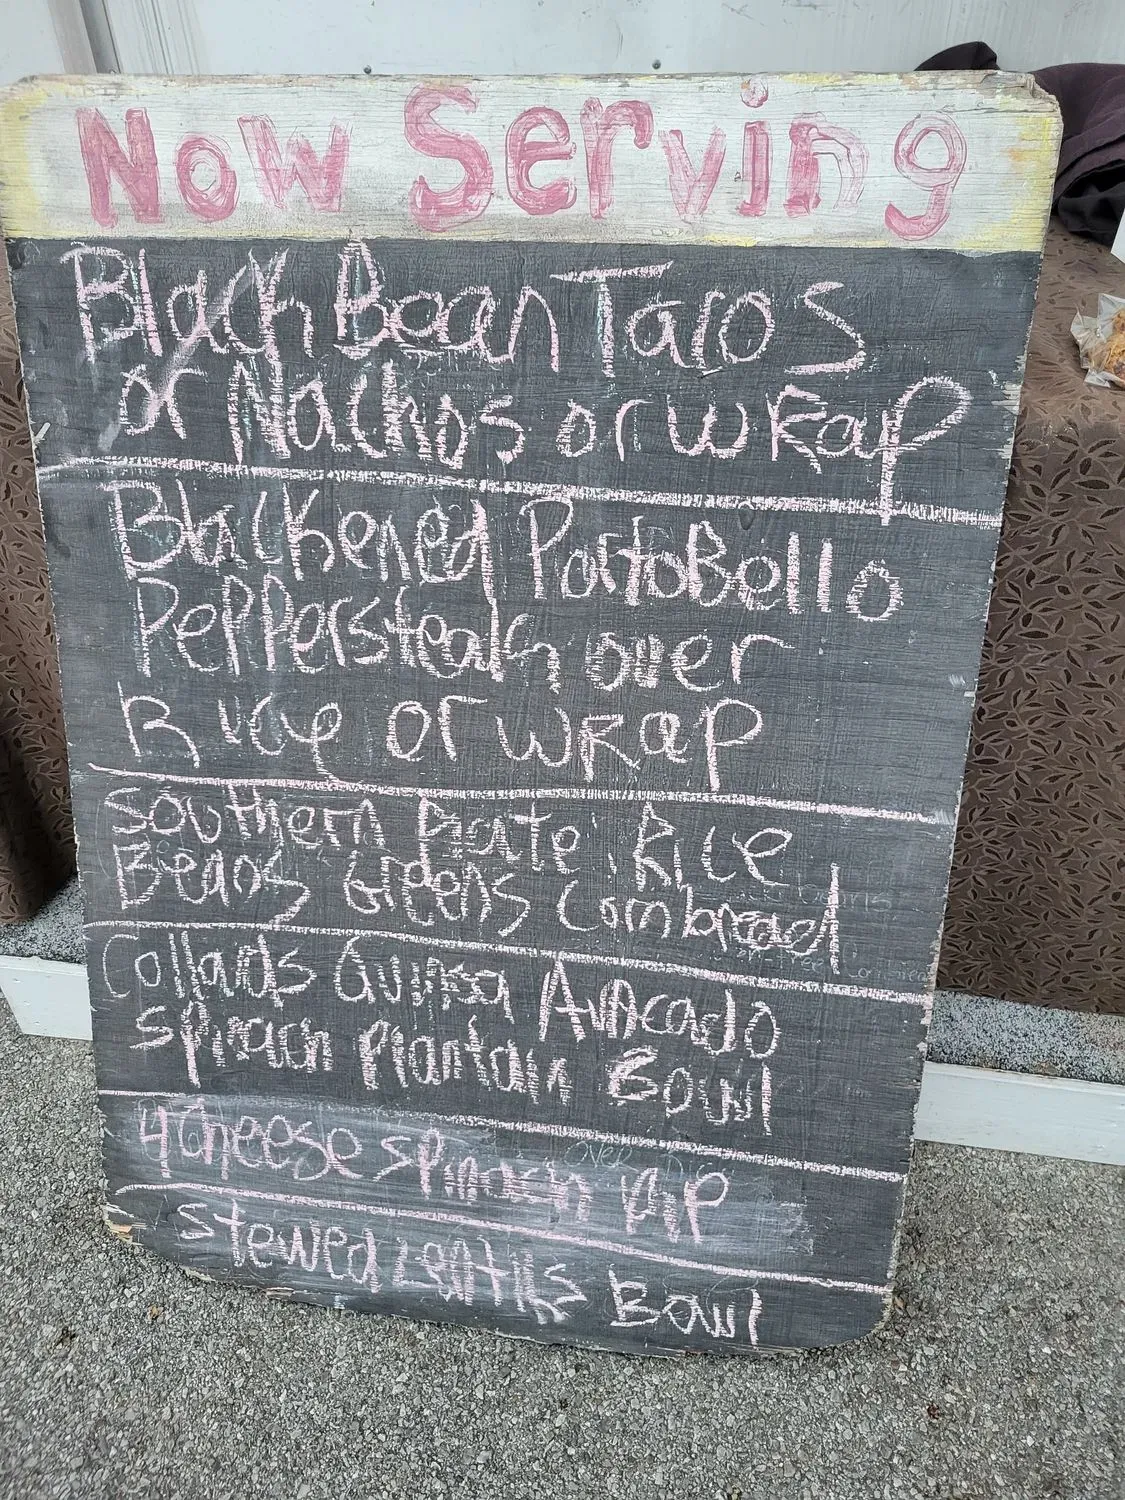 Now Serving
Black Bean Tacos
or Nachos or wRap
Blackened PortoBello
PePPersteak over
Rice or wRap
Southern Plate: Rice
Beans Greens Cornbread
Collards Guinea Avacado
spinach Plantain Bowl
4 Cheese spinach
over Rice
stewed Lentils Bowl